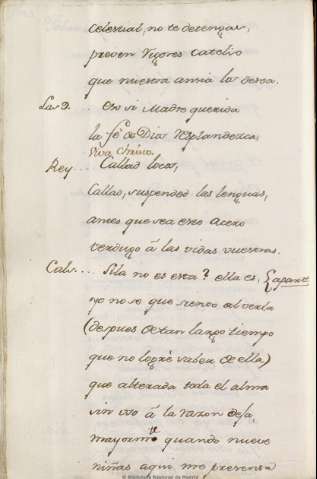 celestial, no te detengas,
preven Vigores Catelio
que nuestra ansia los desea.
Las 9... Ea si Madre querida
la fé de Dios resplandezca
Viva Christo.
Rey... Callad locas,
Callad, suspended las lenguas,
antes que sea este Acero
verdugo á las vidas vuestras.
Cat... Sila no es esta? ella es, {aparte
yo no se que siento al verla
(despues de tan largo tiempo
que no logrè saber de ella)
que alterada toda el alma
sin uso á la razon deja,
mayormte quando nueve
niñas aqui me presenta
© Biblioteca Nacional de España